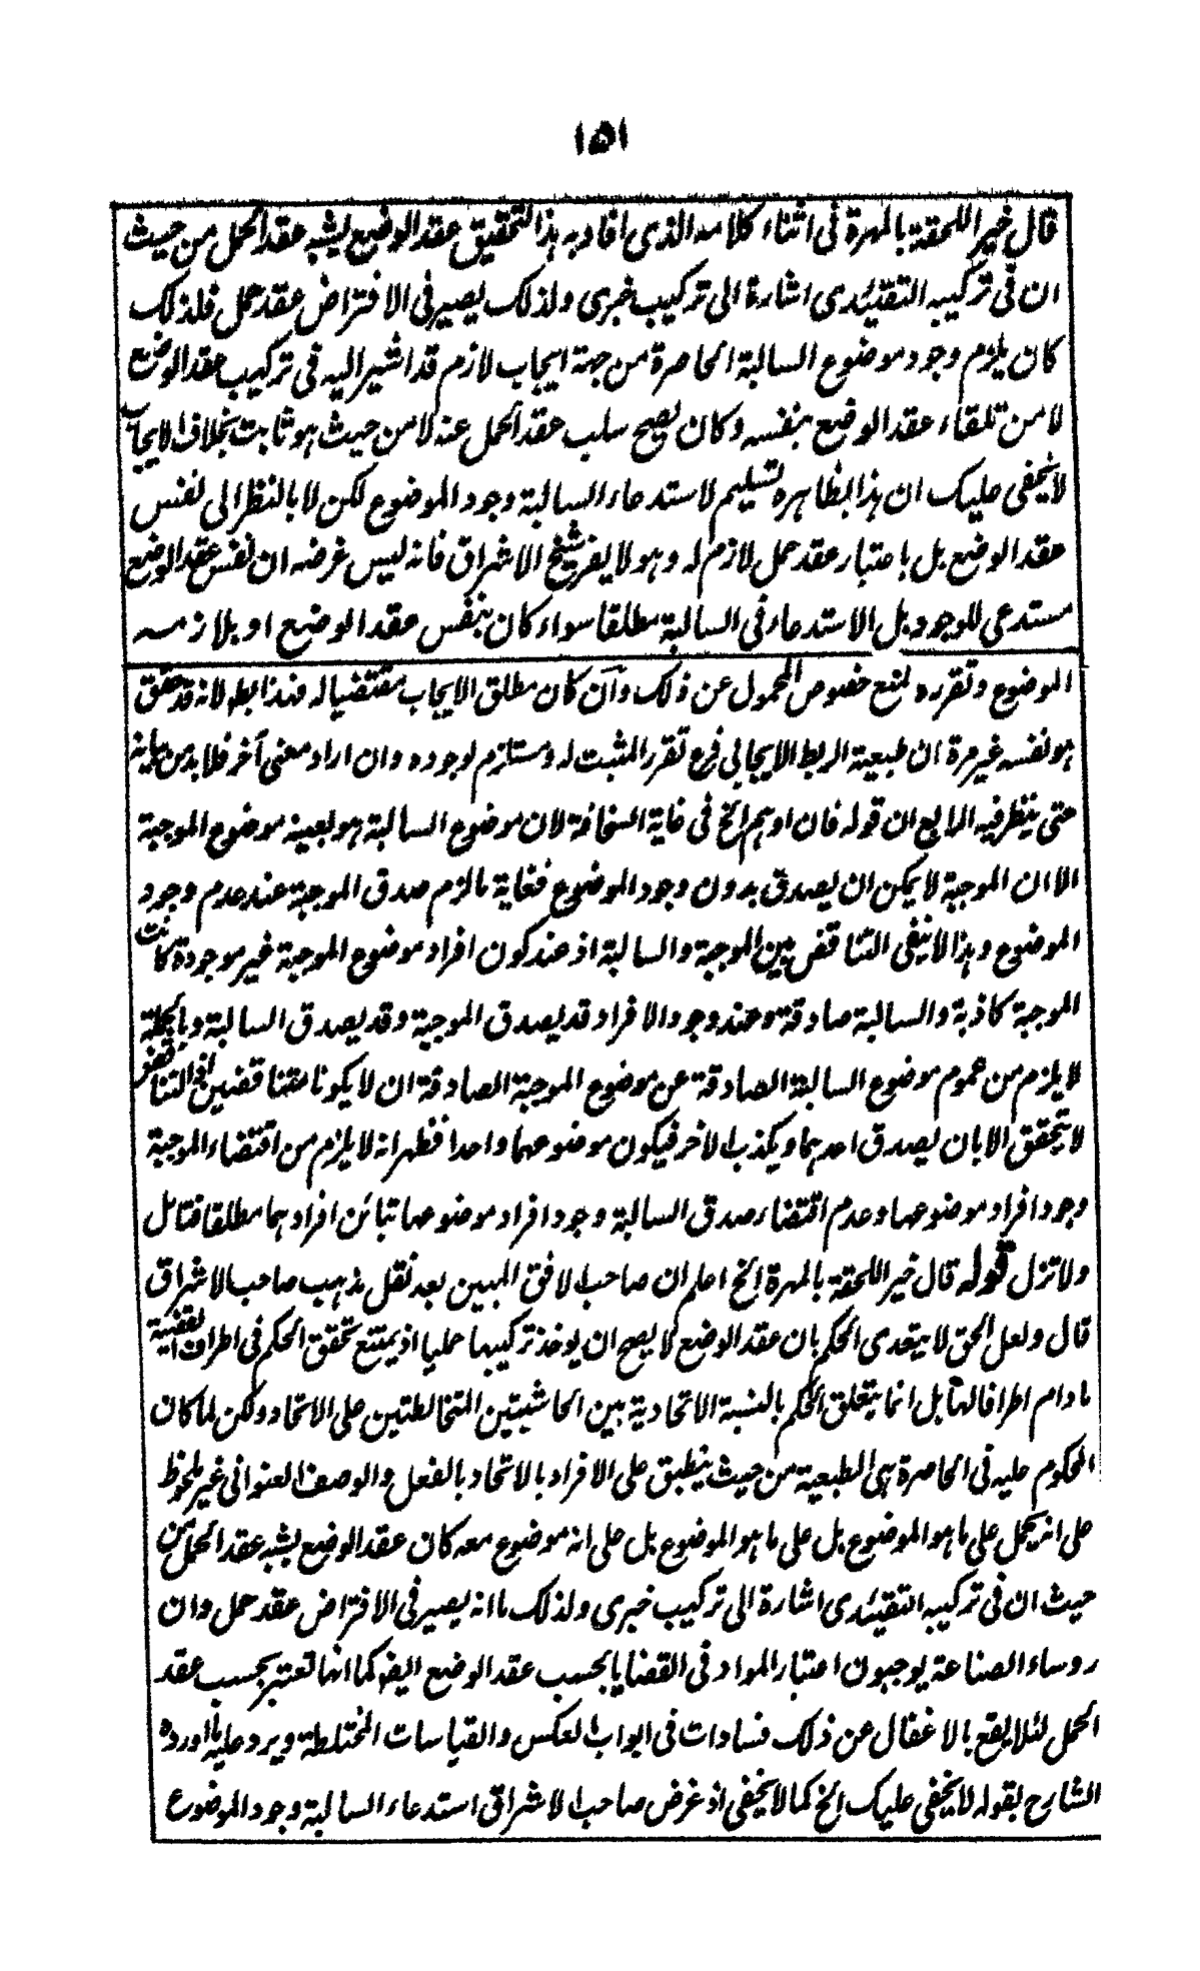 ١٥١
قال خير اللحقة بالمهرة فى اثناء كلامه الذى افاد به هذا التحقيق عقد الوضع يشبه عقد الحمل من حيث
ان فى تركيبه التقئيدى اشارة الى تركيب خبرى ولذلك يصير فى الافتراض عقد حمل فلذلك
كان يلزم وجود موضوع السالبة الحاصرة من جهة ايجاب لازم قد اشير اليه فى تركيب عقد الوضع
لا من تلقاء عقد الوضع بنفسه وكان يصح سلب عقد الحمل عنه لا من حيث هو ثابت بخلاف الايجاب
لا يخفى عليك ان هذا بظاهره تسليم لاستدعاء السالبة وجود الموضوع لكن لا بالنظر الى نفس
عقد الوضع بل باعتبار عقد حمل لازم له وهو لا يضر شيخ الاشراق فانه ليس غرضه ان نفس عقد الوضع
مستدعى للوجود بل الاستدعاء فى السالبة مطلقا سواء كان بنفس عقد الوضع او بلازمه
الموضوع وتقرره لمنع خصوص المحمول عن ذلك وان كان مطلق الايجاب مقتضيا له فهذا بط لانه قد حقق
هو نفسه غير مرة ان طبيعة الربط الايجابى فرع تقرر المثبت له ومستلزم لوجوده وان اراد معنى آخر فلا بد من بيانه
حتى ينظر فيه الرابع ان قوله فان اوهم الخ فى غاية السخافة لان موضوع السالبة هو بعينه موضوع الموجبة
الا ان الموجبة لا يمكن ان يصدق بدون وجود الموضوع فغاية ما لزم صدق الموجبة عند عدم وجود
الموضوع وهذا لا ينفى التناقض بين الموجبة والسالبة اذ عند كون افراد موضوع الموجبة غير موجودة كانت
الموجبة كاذبة والسالبة صادقة وعند وجود الافراد قد يصدق الموجبة وقد يصدق السالبة وبالجملة
لا يلزم من عموم موضوع السالبة الصادقة عن موضوع الموجبة الصادقة ان لا يكونا متناقضين اذ التناقض
لا يتحقق الا بان يصدق احدهما ويكذب الاخر فيكون موضوعهما واحدا فظهر انه لا يلزم من اقتضاء الموجبة
وجود افراد موضوعها وعدم اقتضاء صدق السالبة وجود افراد موضوعها تبائن افرادهما مطلقا فتامل
ولا تزل قوله قال خير اللحقة بالمهرة الخ اعلم ان صاحب الافق المبين بعد نقل مذهب صاحب الاشراق
قال ولعل الحق لا يتعدى الحكم بان عقد الوضع لا يصح ان يوخذ تركيبها حمليا اذ يمتنع تحقق الحكم فى اطراف القضية
ما دام اطرافا لها بل انما يتعلق الحكم بالنسبة الاتحادية بين الحاشيتين المتخالطتين على الاتحاد ولكن لما كان
المحكوم عليه فى الحاصرة هى الطبعية من حيث ينطبق على الافراد بالاتحاد بالفعل والوصف العنوانى غير ملحوظ
على انه يحمل على ما هو الموضوع بل على ما هو الموضوع بل على انه موضوع معه كان عقد الوضع يشبه عقد الحمل من
حيث ان فى تركيبه التقئيدى اشارة الى تركيب خبرى ولذلك ما انه يصير فى الافتراض عقد حمل وان
روساء الصناعة يوجبون اعتبار المواد فى القضايا بحسب عقد الوضع ايضا كما انها تعتبر بحسب عقد
الحمل لئلا يقع بالاغفال عن ذلك فسادات فى ابواب العكس والقياسات المختلطة ويرد عليه ما اورده
الشارح بقوله لا يخفى عليك الخ كما لا يخفى اذ غرض صاحب الاشراق استدعاء السالبة وجود الموضوع